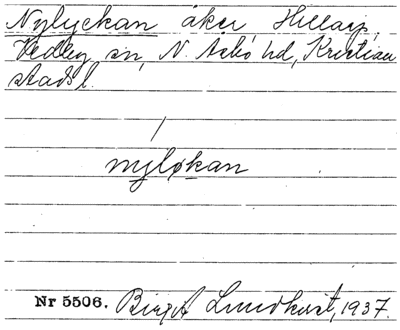 Nylyckan åker Hillarp,
Vedby sn, N. Åsbo hd, Kristian
stads l.
nyløkan
Nr 5506. Birgit Lundkvist, 1937.